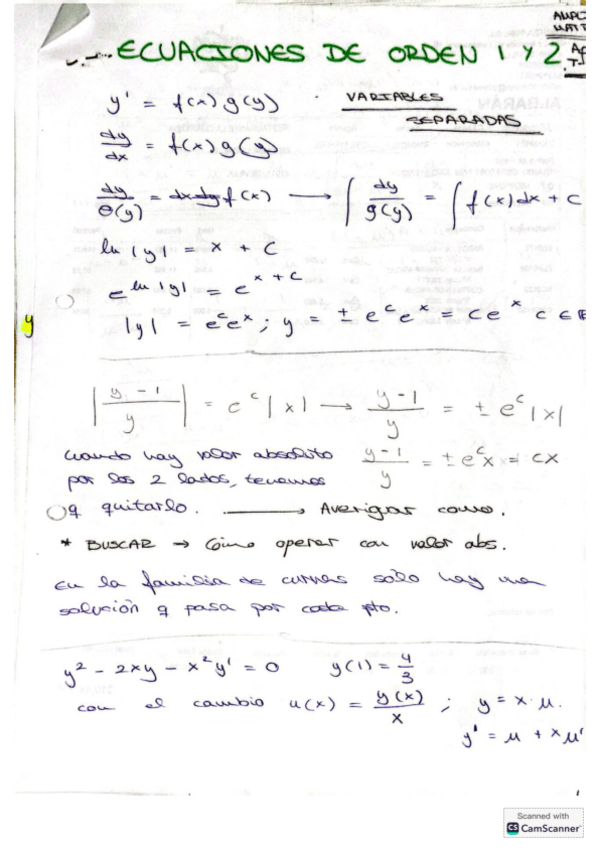 AMPL
MAT
ECUACIONES DE ORDEN 1 Y 2.
y' = f(x) g(y)
VARIABLES
SEPARADAS
dy/dx = f(x) g(y)
dy/θ(y) = dx dy f(x) → ∫ dy/g(y) = ∫ f(x) dx + C
ln |y| = x + C
e^{ln |y|} = e^{x + C}
y
|y| = e^c e^x ; y = ± e^c e^x = c e^x c ∈ ℝ
|y - 1 / y| = e^c |x| → y-1/y = ± e^c |x|
cuando hay valor absoluto
por los 2 lados, tenemos
q quitarlo. → Averiguar como.
y-1/y = ± e^c x = cx
* BUSCAR → Cómo operar con valor abs.
En la familia de curvas sólo hay una
solución q pasa por cada pto.
y² - 2xy - x² y' = 0 y(1) = 4/3
con el cambio u(x) = y(x)/x ; y = x · u.
y' = u + x u'
Scanned with
CS CamScanner